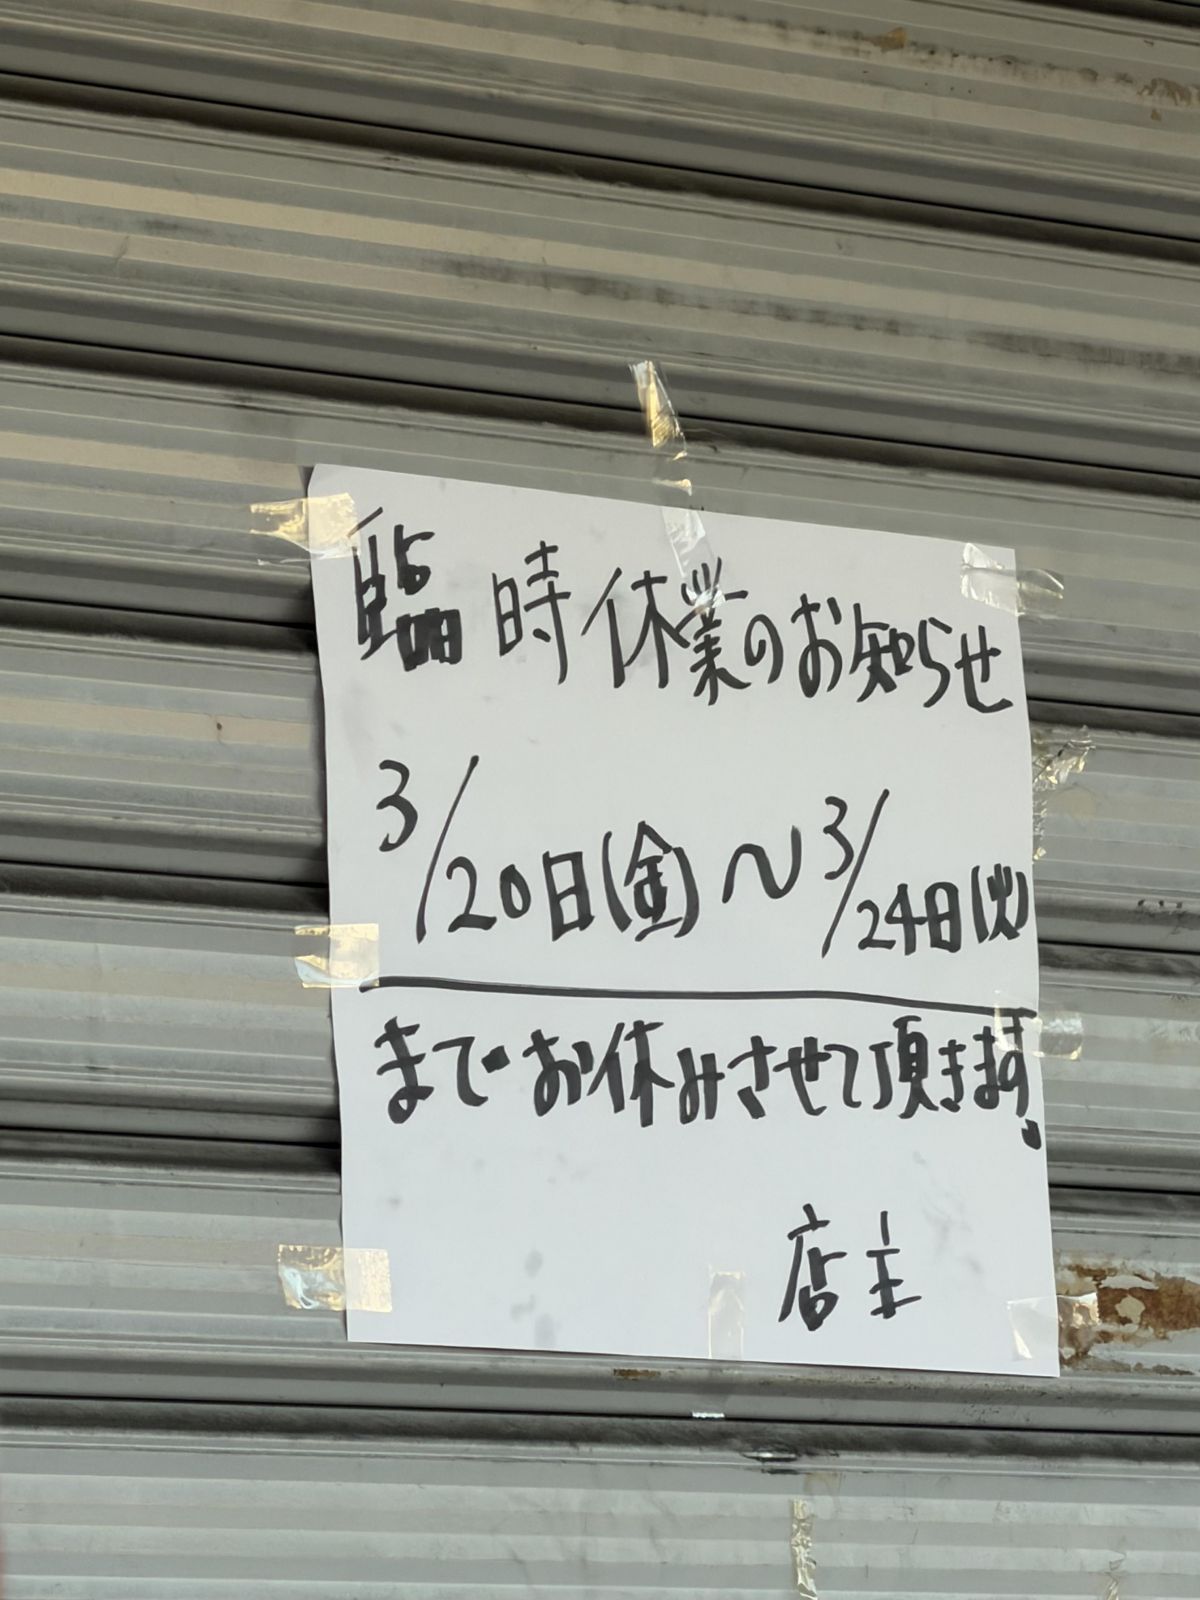 臨時休業のお知らせ
3/20日(金)〜3/24日(火)
までお休みさせて頂きます.
店主